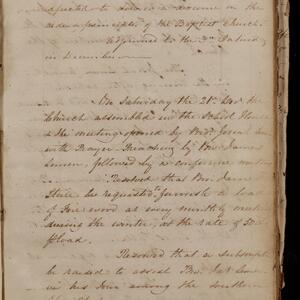 expected to deliver a discourse on the
rules & principles of the Baptist Church.
Adjourned to the 3rd Saturday
in December
On Saturday the 21st Decr the
Church assembled in the School House
& the meeting opened by Bro.
with Prayer. Preaching by Bro. James
followed by a conference
Resolved that Bro. James
be requested furnish a load
of fire wood at every monthly meeting
during the winter, at the rate of 50
pr load.
Resolved that a subscription
be raised to assist Bro.
in his tour among the southern